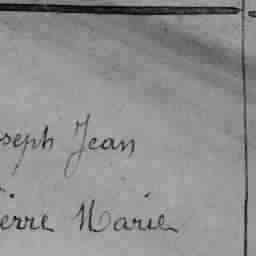 oseph Jean
ierre Marie